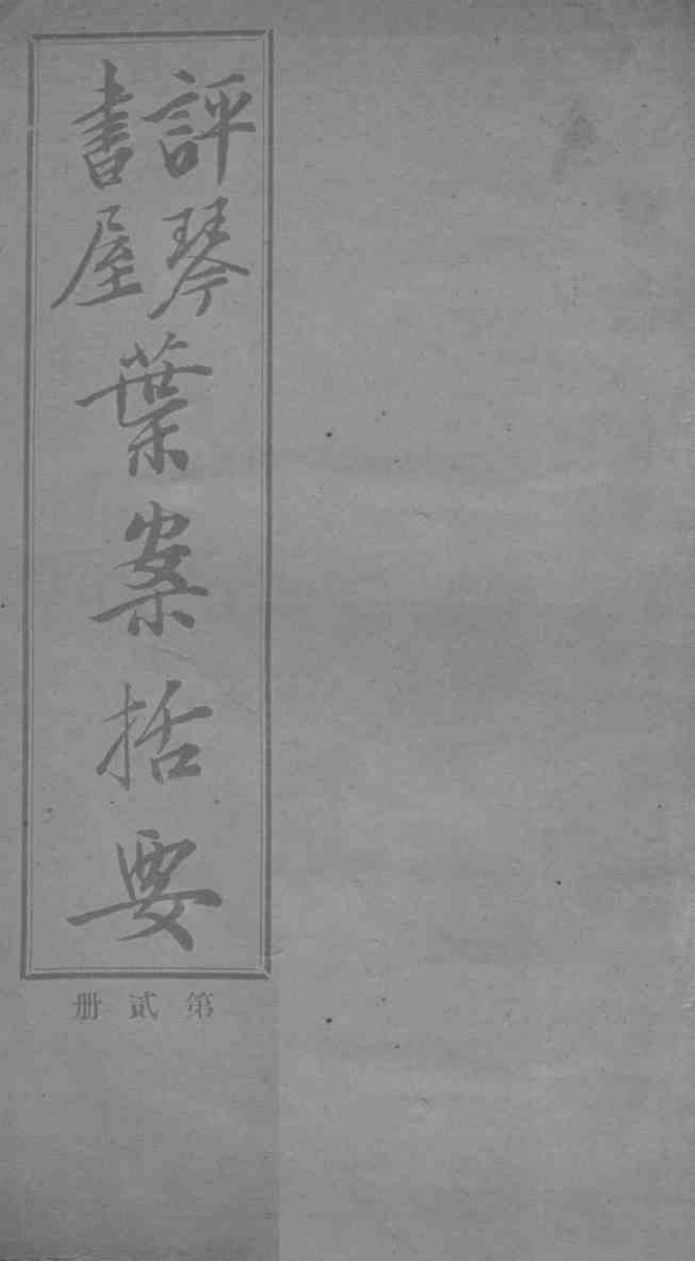 評琴
書屋
葉案括要
第貳册